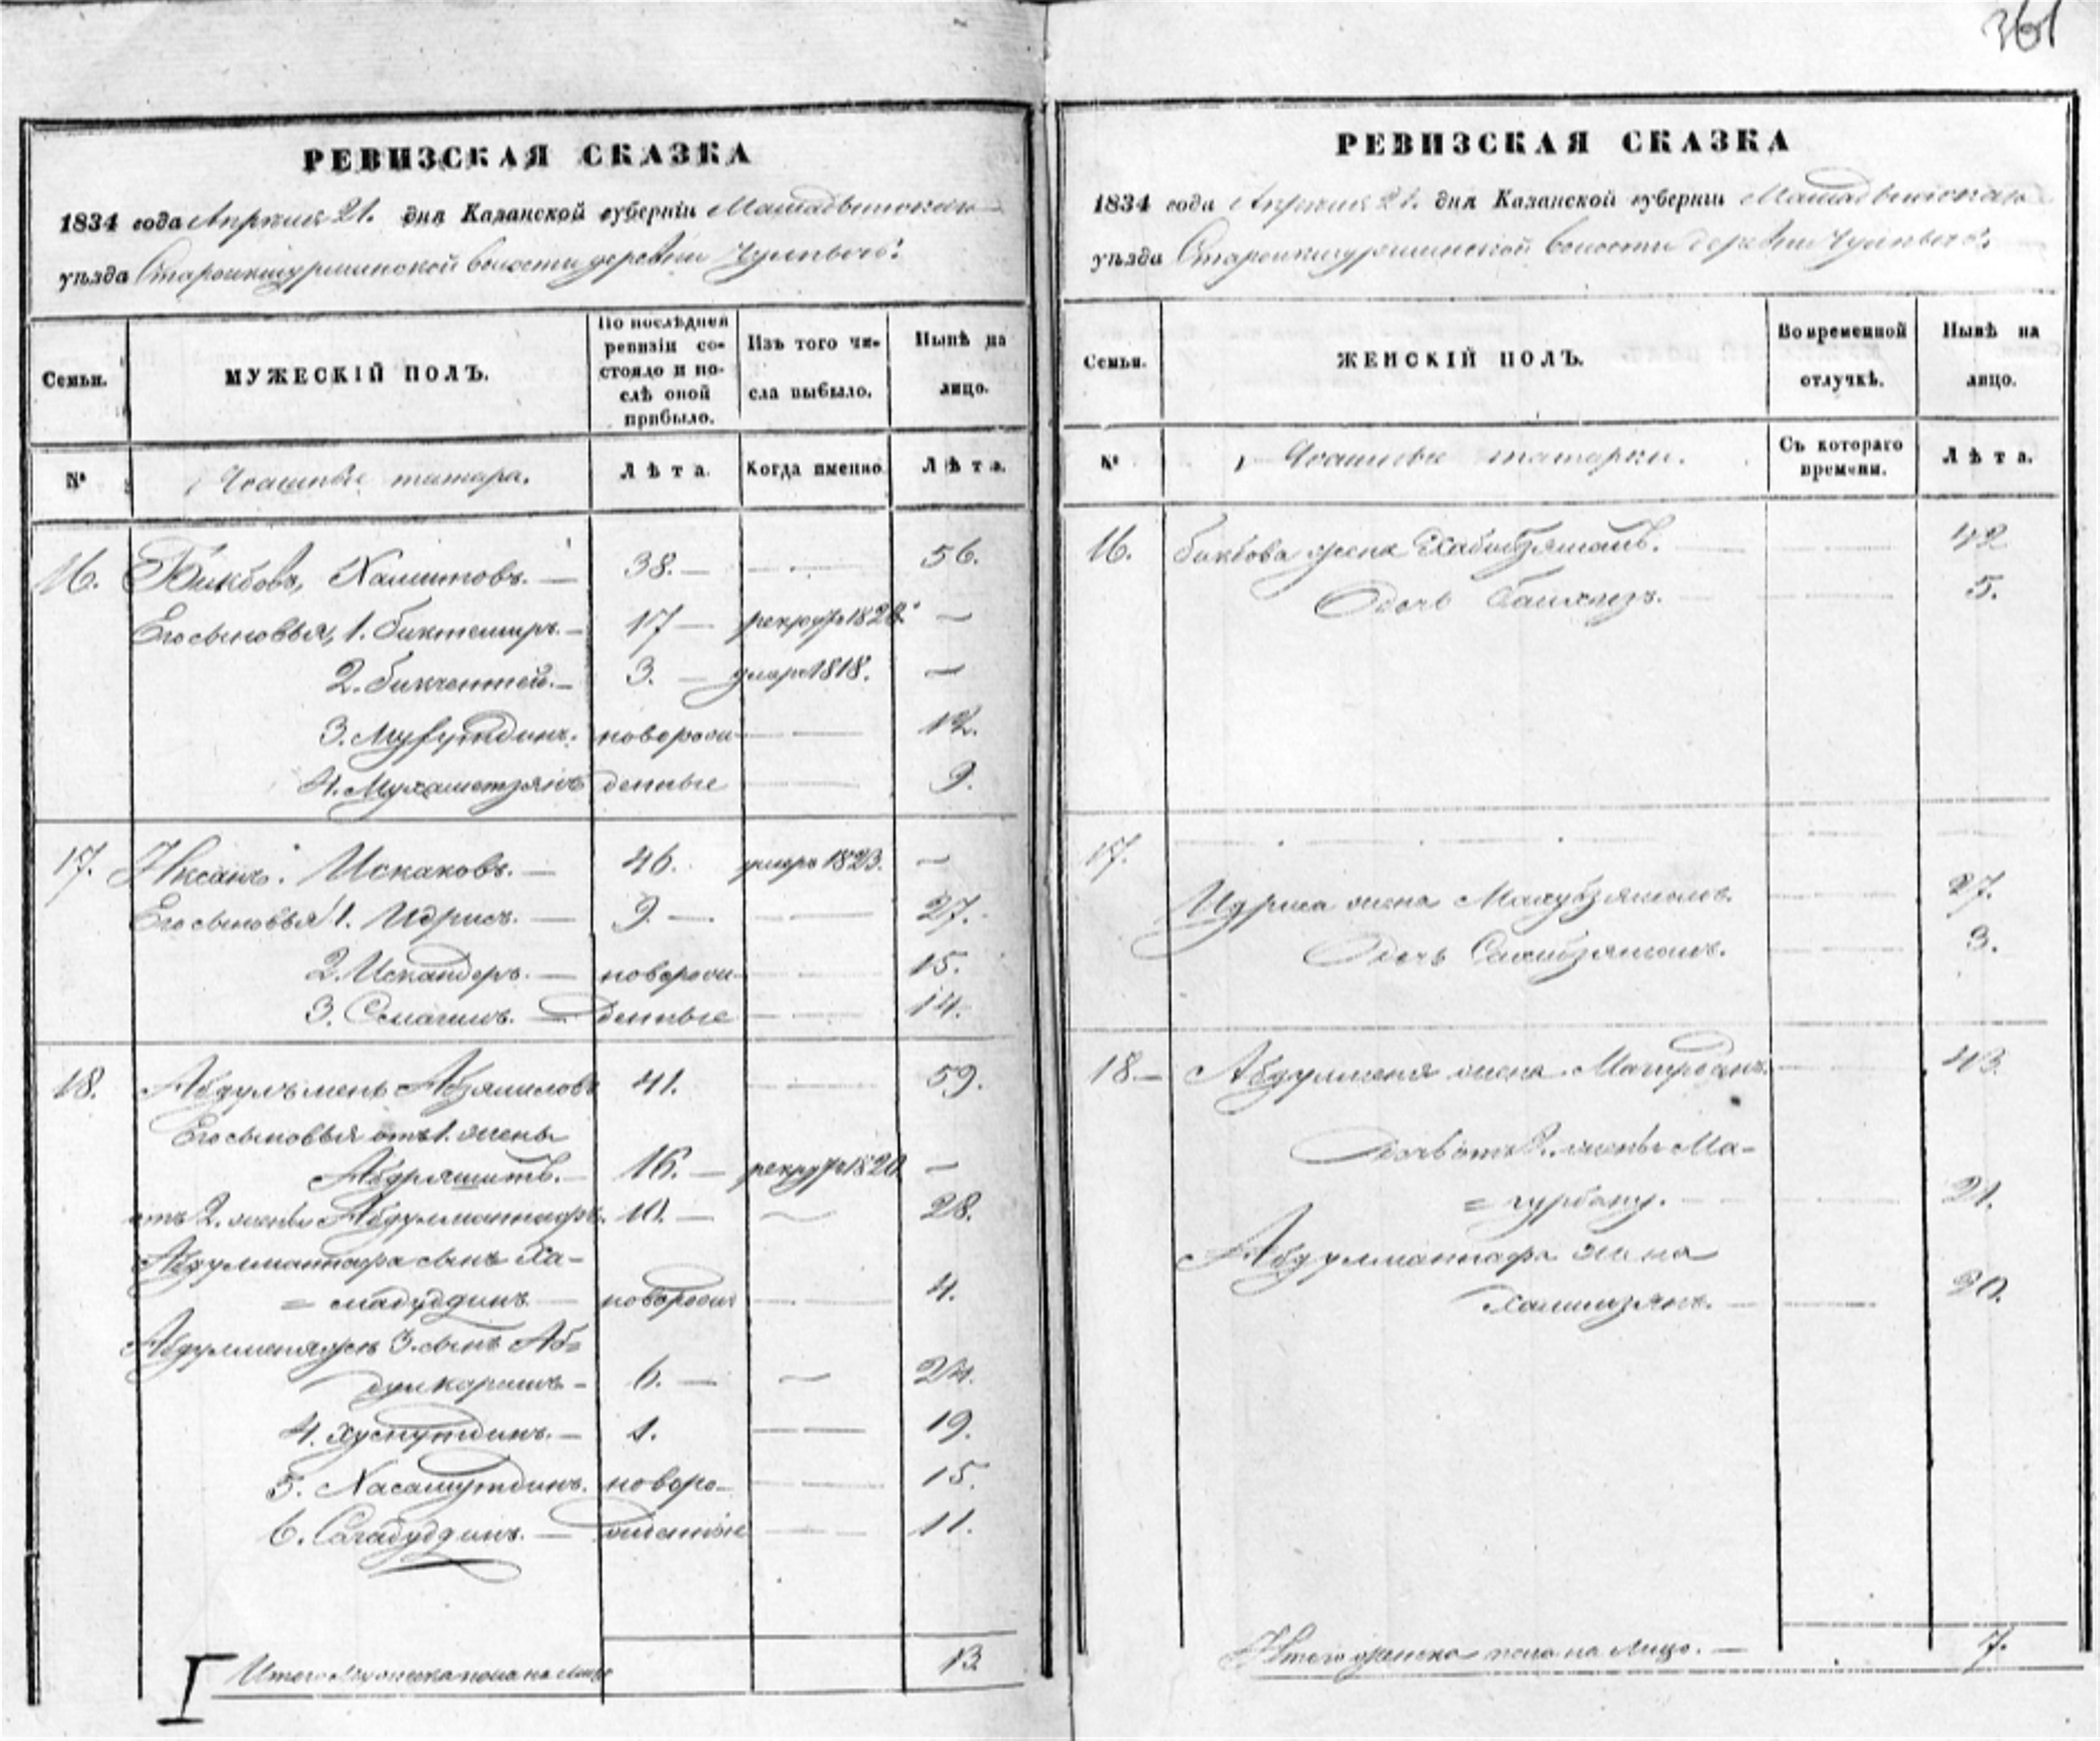 361
РЕВИЗСКАЯ СКАЗКА
1834 года Апреля 21. дня Казанской губерніи Мамадышскаго
уѣзда Староикшурминской волости деревни
МУЖЕСКІЙ ПОЛЪ.
Семьи.
По послѣдней ревизіи состояло и послѣ оной прибыло.
Изъ того числа выбыло.
Нынѣ на лицо.
№
Ясашные татара.
Лѣта.
Когда именно
Лѣта.
16. Бикбовъ Хамитовъ. — 38. — 56.
Его сыновья, 1. биктемиръ. — 17 — рекрут —
2. бикчентей. — 3. — умеръ 1818. —
3. новорож- 12.
4. Мухаметзянъ денные 9.
17. Искаковъ. — 46. умеръ 1823. —
Его сыновья 1. Идрисъ. — 9. — 27.
2. Искандеръ. — новорож- 15.
3. — денные 14.
18. Абдулъменъ Абзялиловъ 41. 59.
Его сыновья отъ 1. жены
Абдряшитъ. — 16. — рекрут 1820. —
отъ 2. жены Абдулматтафъ. 10. — 28.
Абдулматтафа сынъ Ха-
= мадуддинъ — новорож 4.
3. сынъ Аб=
дулкаримъ — 6. — 24.
4. Хуснутдинъ. — 1. 19.
5. Хасамутдинъ. новоро- 15.
6. Сагадуддинъ. — жденные 11.
Итого мужеска пола на лицо 13.
РЕВИЗСКАЯ СКАЗКА
1834 года Апреля 21. дня Казанской губерніи Мамадышскаго
уѣзда Староикшурминской волости деревни
Семьи.
ЖЕНСКІЙ ПОЛЪ.
Во временной отлучкѣ.
Нынѣ на лицо.
№
Ясашные татарки.
Съ котораго времени.
Лѣта.
16. бикбова жена Хабибзямалъ. 42
Дочь 5.
17.
Идриса жена 27.
Дочь Сахибзямалъ. 3.
18. — Абдулменя жена 43.
Дочь отъ 2. жены Ма-
= 21.
Абдулматтафа жена
20.
Итого женска пола на лицо. — 7.